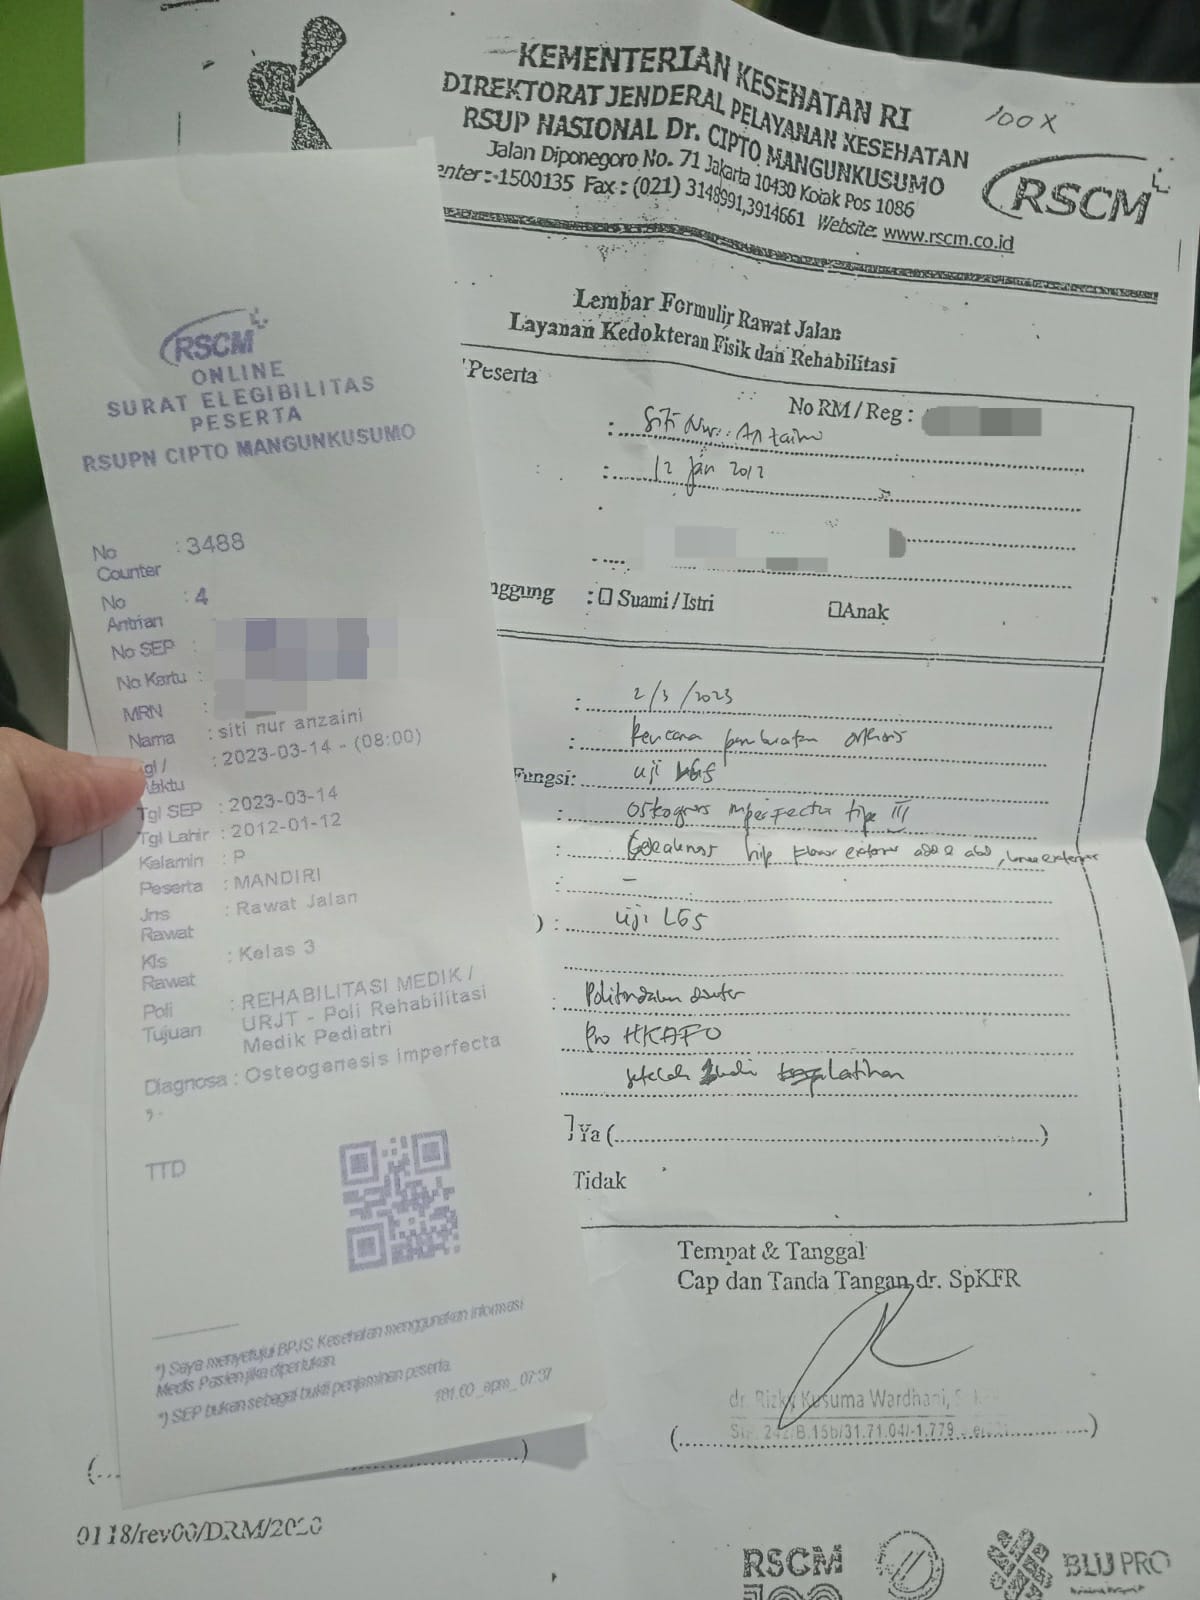 KEMENTERIAN KESEHATAN RI
DIREKTORAT JENDERAL PELAYANAN KESEHATAN
RSUP NASIONAL Dr. CIPTO MANGUNKUSUMO
Jalan Diponegoro No. 71 Jakarta 10430 Kotak Pos 1086
enter : 1500135 Fax : (021) 3148991,3914661 Website: www.rscm.co.id
100 X
RSCM
Lembar Formulir Rawat Jalan
Layanan Kedokteran Fisik dan Rehabilitasi
Peserta
No RM / Reg :
: Siti Nur
: 12 Jan 2012
nggung : Suami / Istri Anak
: 2/3/2023
: Rencana pembuatan orthosis
Fungsi: uji LGS
: imperfecta tipe III
: hip flexor extensor add & abd, knee extensor
: -
) : uji LGS
:
: Pro HKAFO
setelah latihan
Ya (..........)
Tidak
Tempat & Tanggal
Cap dan Tanda Tangan dr. SpKFR
dr. Rizky Kusuma Wardhani,
(..........)
0118/rev00/DRM/2020
RSCM
BLU PRO
RSCM
ONLINE
SURAT ELEGIBILITAS
PESERTA
RSUPN CIPTO MANGUNKUSUMO
No Counter : 3488
No Antrian : 4
No SEP :
No Kartu :
MRN :
Nama : siti nur anzaini
Tgl / Waktu : 2023-03-14 - (08:00)
Tgl SEP : 2023-03-14
Tgl Lahir : 2012-01-12
Kelamin : P
Peserta : MANDIRI
Jns Rawat : Rawat Jalan
Kls Rawat : Kelas 3
Poli Tujuan : REHABILITASI MEDIK /
URJT - Poli Rehabilitasi
Medik Pediatri
Diagnosa : Osteogenesis imperfecta
, -
TTD
*) Saya menyetujui BPJS Kesehatan menggunakan informasi
Medis Pasien jika diperlukan.
*) SEP bukan sebagai bukti penjaminan peserta.
181.60_apm_07:37